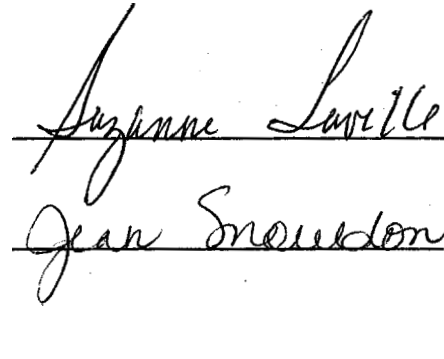 Suzanne Laville
Jean Snowdon